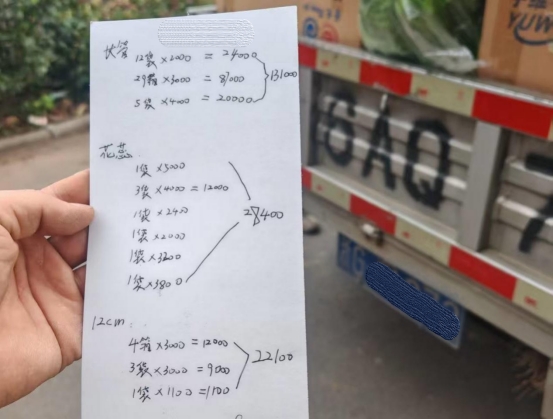 长管
12袋×2000 = 24000
29箱×3000 = 87000
5袋×4000 = 20000
131000
花蕊
1袋×5000
3袋×4000 = 12000
1袋×2400
1袋×2000
1袋×3200
1袋×3800
400
12cm:
4箱×3000 = 12000
3袋×3000 = 9000
1袋×1100 = 1100
22100
6AQ
7